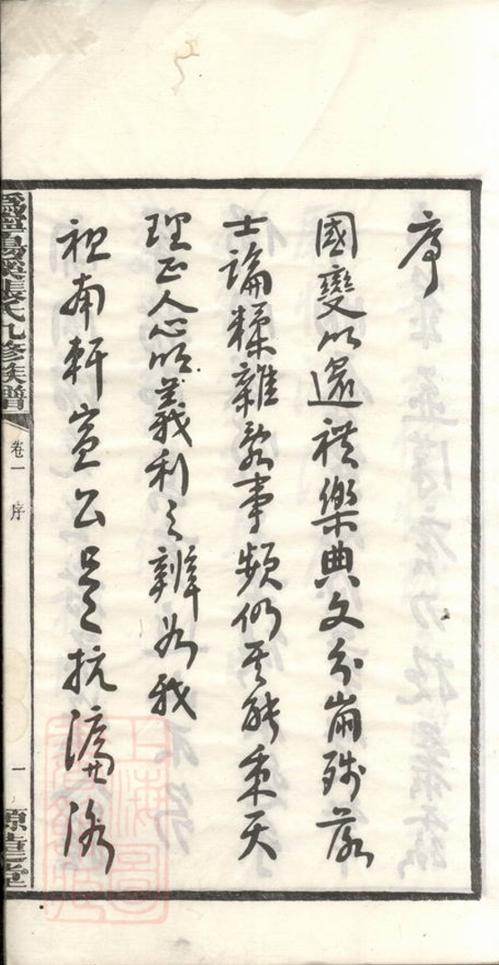 序
國變以還禮樂典文分崩殘落
士論糅雜事頻仍其能秉天
理正人心明義利之辨如我
祖南軒宣公足抗濂洛
張氏九修族譜
卷一
序
一
上海圖